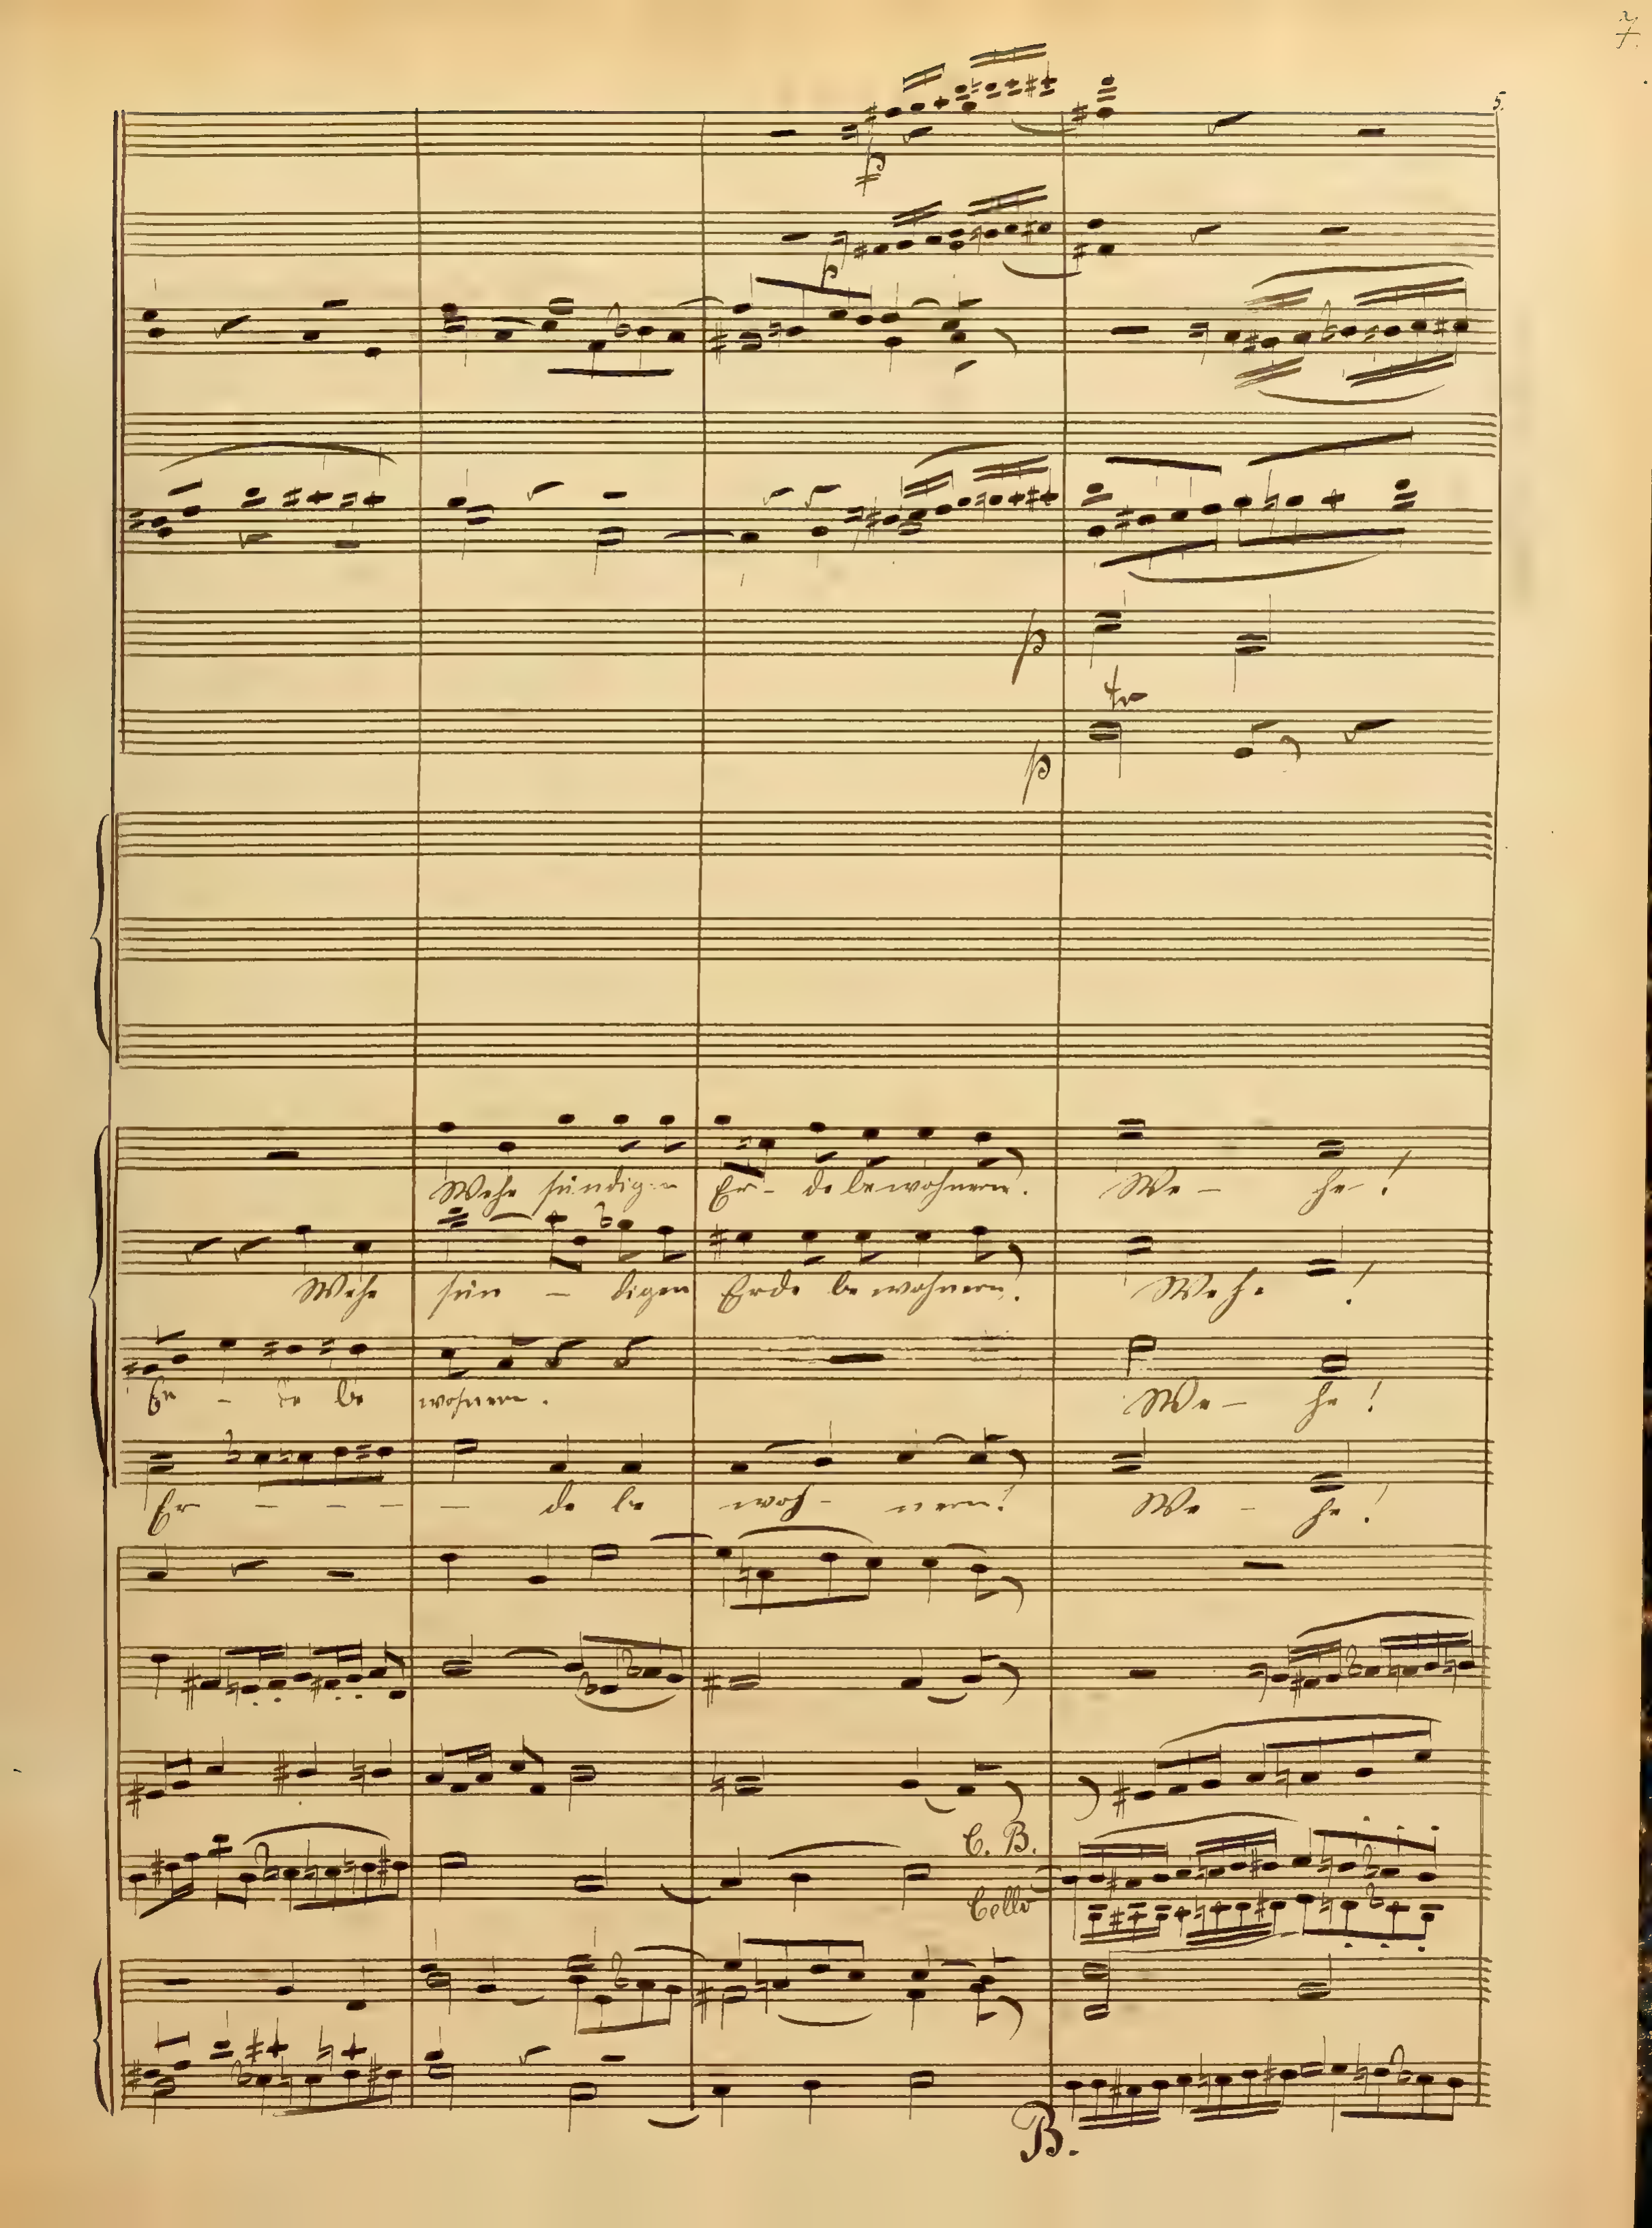 5.
p
p
p
tr
p
Wehe sündigen Er - de bewohnern. We - he!
Wehe sün - digen Erde bewohnern! Wehe!
Er - de be wohnern. We - he!
Er - - - - de be - woh - nern! We - he!
C. B.
Cello
B.